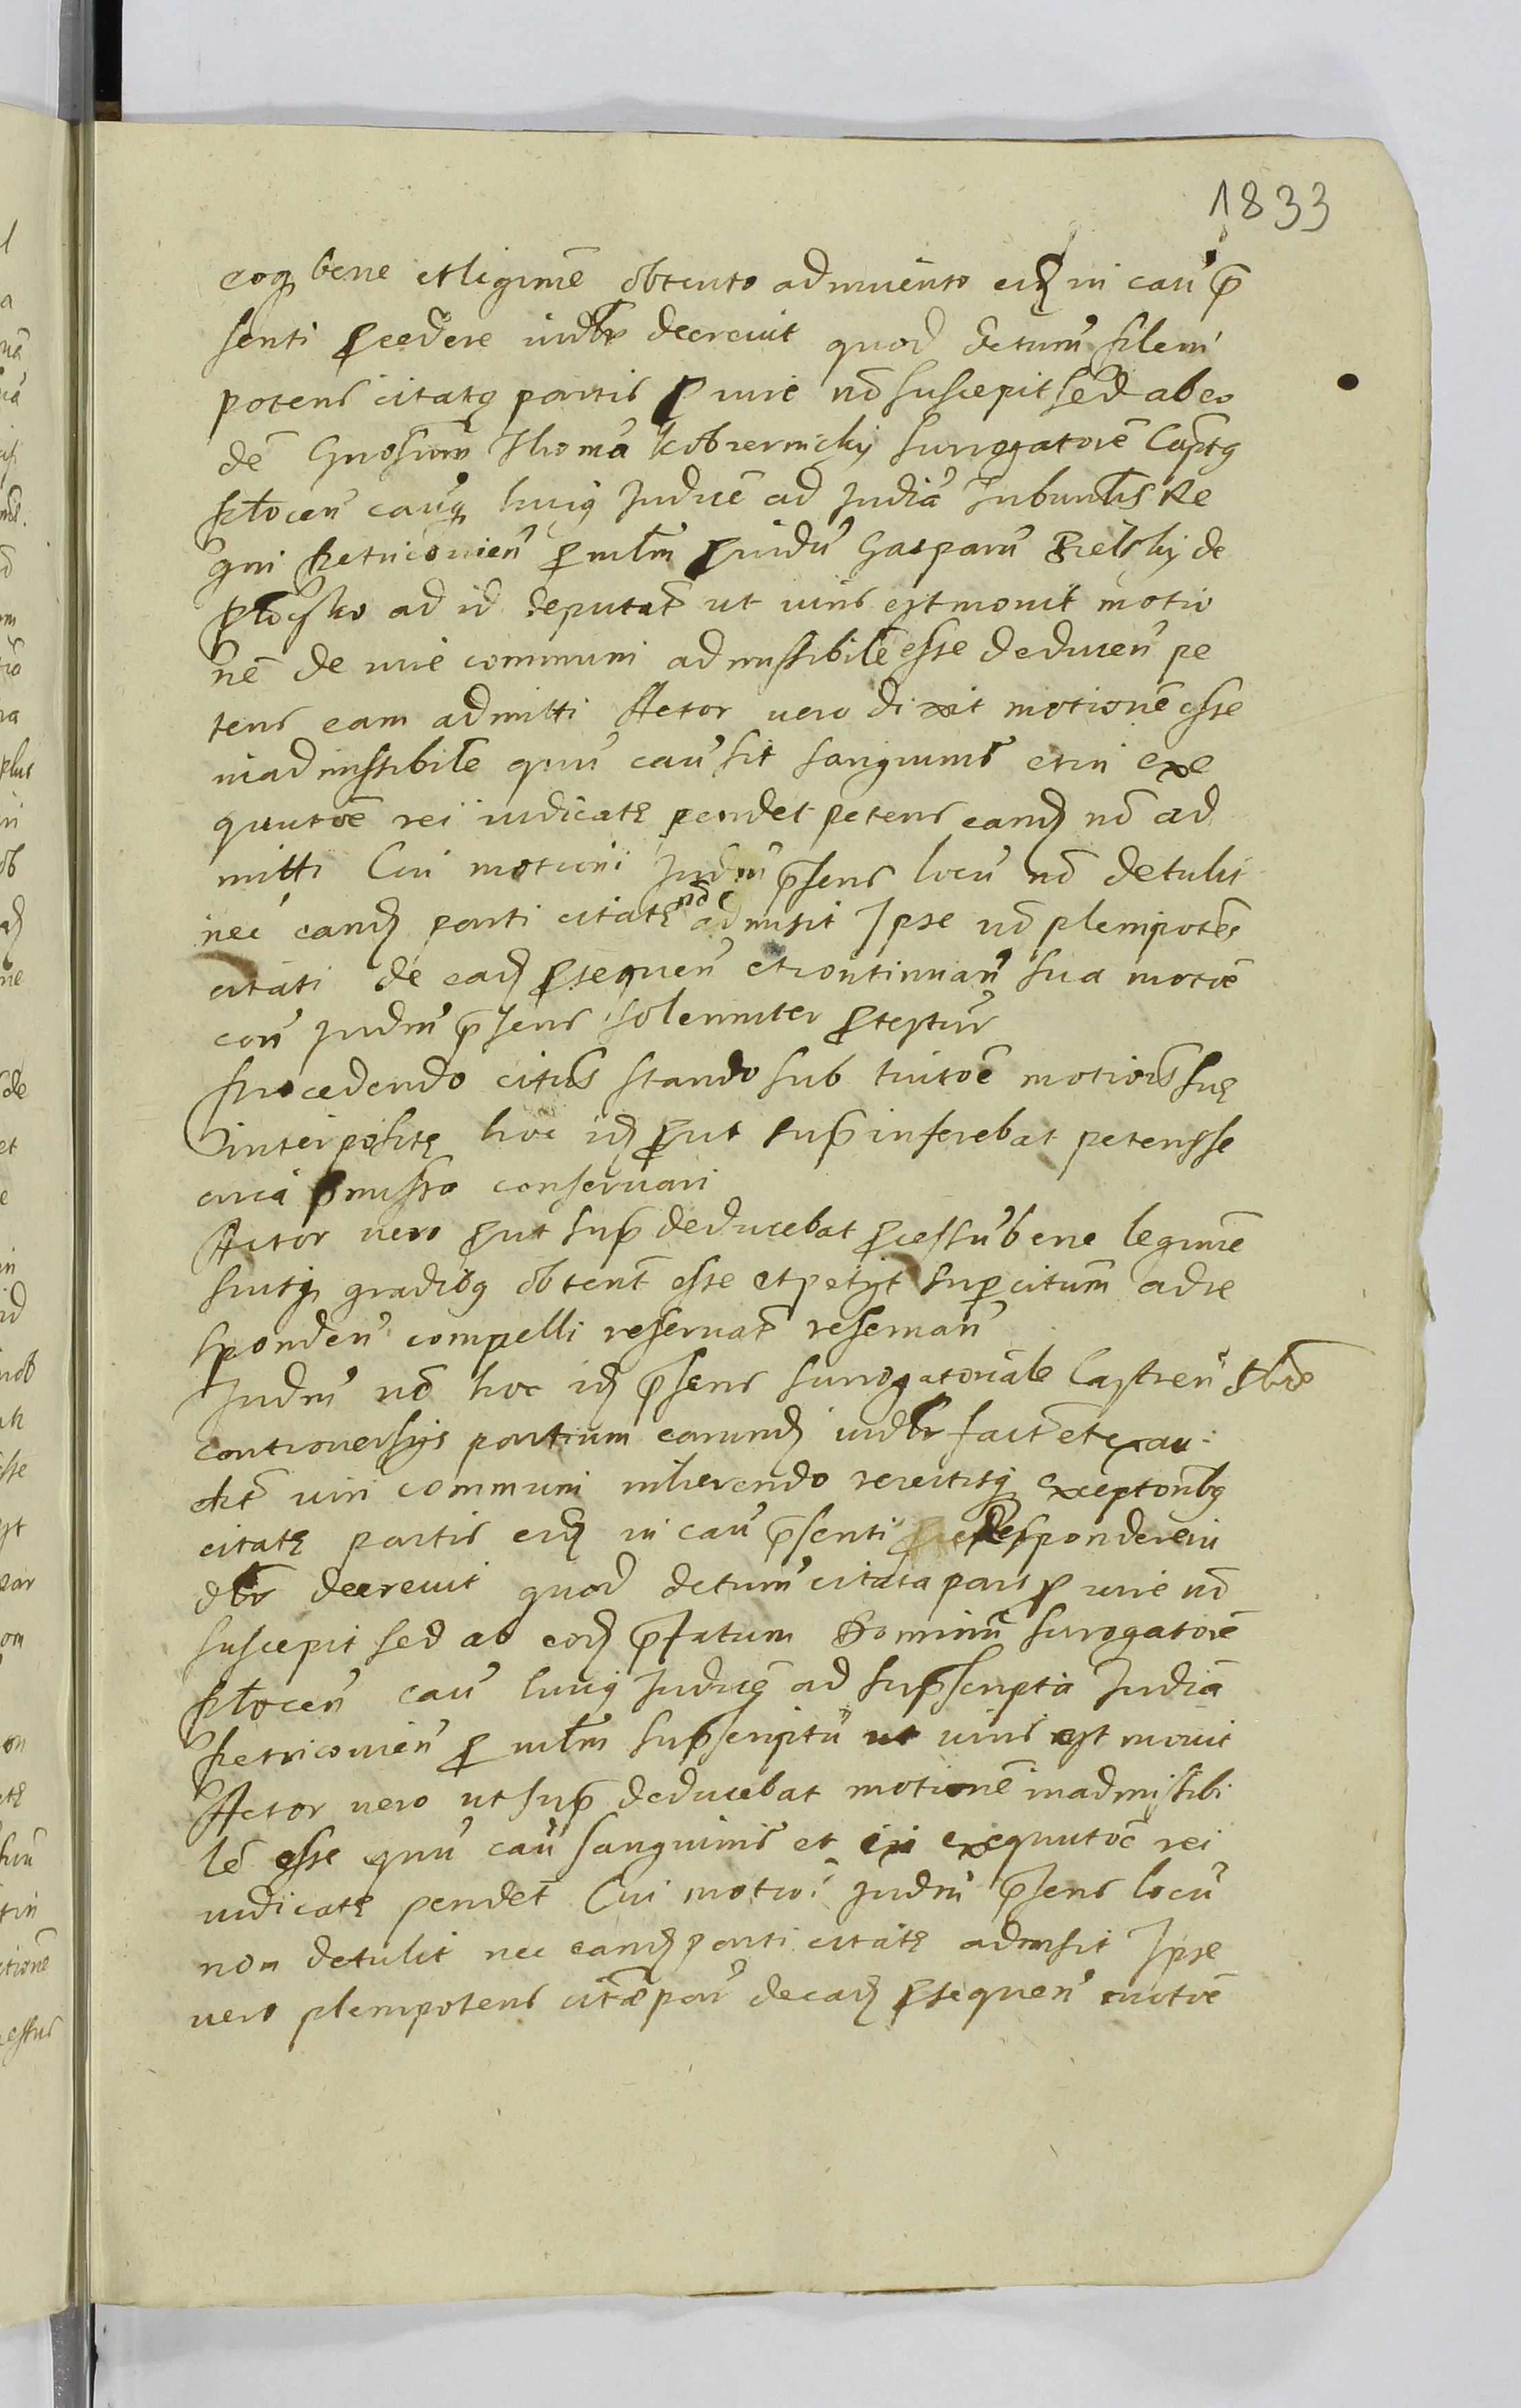 1833
eoq bene et legitime obtento ad mvento eid in cau p̄
senti pcedere iudlr decrevit quod decretum pleni
potens citatę partis p iure nō suscepit sed ab eo
dē Gnosum Thomā Kobiernicky Surrogatorē Captę
Plocen̄ cauęq huiq Judicē ad Judicia Tribunlis Re
gni Petricovien̄ p mlm providū Gasparū Bielsky de
Plocsko ad id deputat̄ ut iuris est movit motio
nē de iure communi admissibilē esse deducen̄ pe
tens eam admitti Actor vero dixit motionē esse
inadmissibilē quū cau sit sanguinis et in exe
quutōe rei iudicatę pendet petens eand nō ad
mitti Cui motioni Judm p̄sens locū nō detulit
nec eand parti citatę nō admisit Ipse vō plenipotēs
citati de ead psequen̄ et continuan̄ sua motōe
con̄ Judm p̄sens solenniter ptestur
Procedendo citūs stando sub tuitōe motiōis suę
interpositę hoc id put sup inferebat petens se
circa pmissa conservari
Actor vero put sup deducebat pcessū bene legitime
suisq gradibq obtent̄ esse et petyt sup citatum ad re
sponden̄ compelli reservat̄ reservan̄
Judm vō hoc id p̄sens Surrogatoriale Castren̄
controversys partium earund iudlr fact̄ et exau
dit̄ iuri communi inherendo reiectisq exceptōnibq
citatę partis eid in cau p̄senti respondere iu
dlr decrevit quod decretum citata pars p iure nō
suscepit sed ab eod p̄fatum Dominū Surrogatorē
Plocen̄ cau huiq Judicē ad suprascripta Judicia
Petricovien̄ p mlm supscriptū ut iuris est movit
Actor vero ut sup deducebat motionē inadmissibi
lē esse quū cau sanguinis et in exequutōe rei
iudicatę pendet Cui motioi Judm p̄sens locū
non detulit nec eand parti citatę admisit Ipse
vero plenipotens citāe par de ead psequen̄ motōe